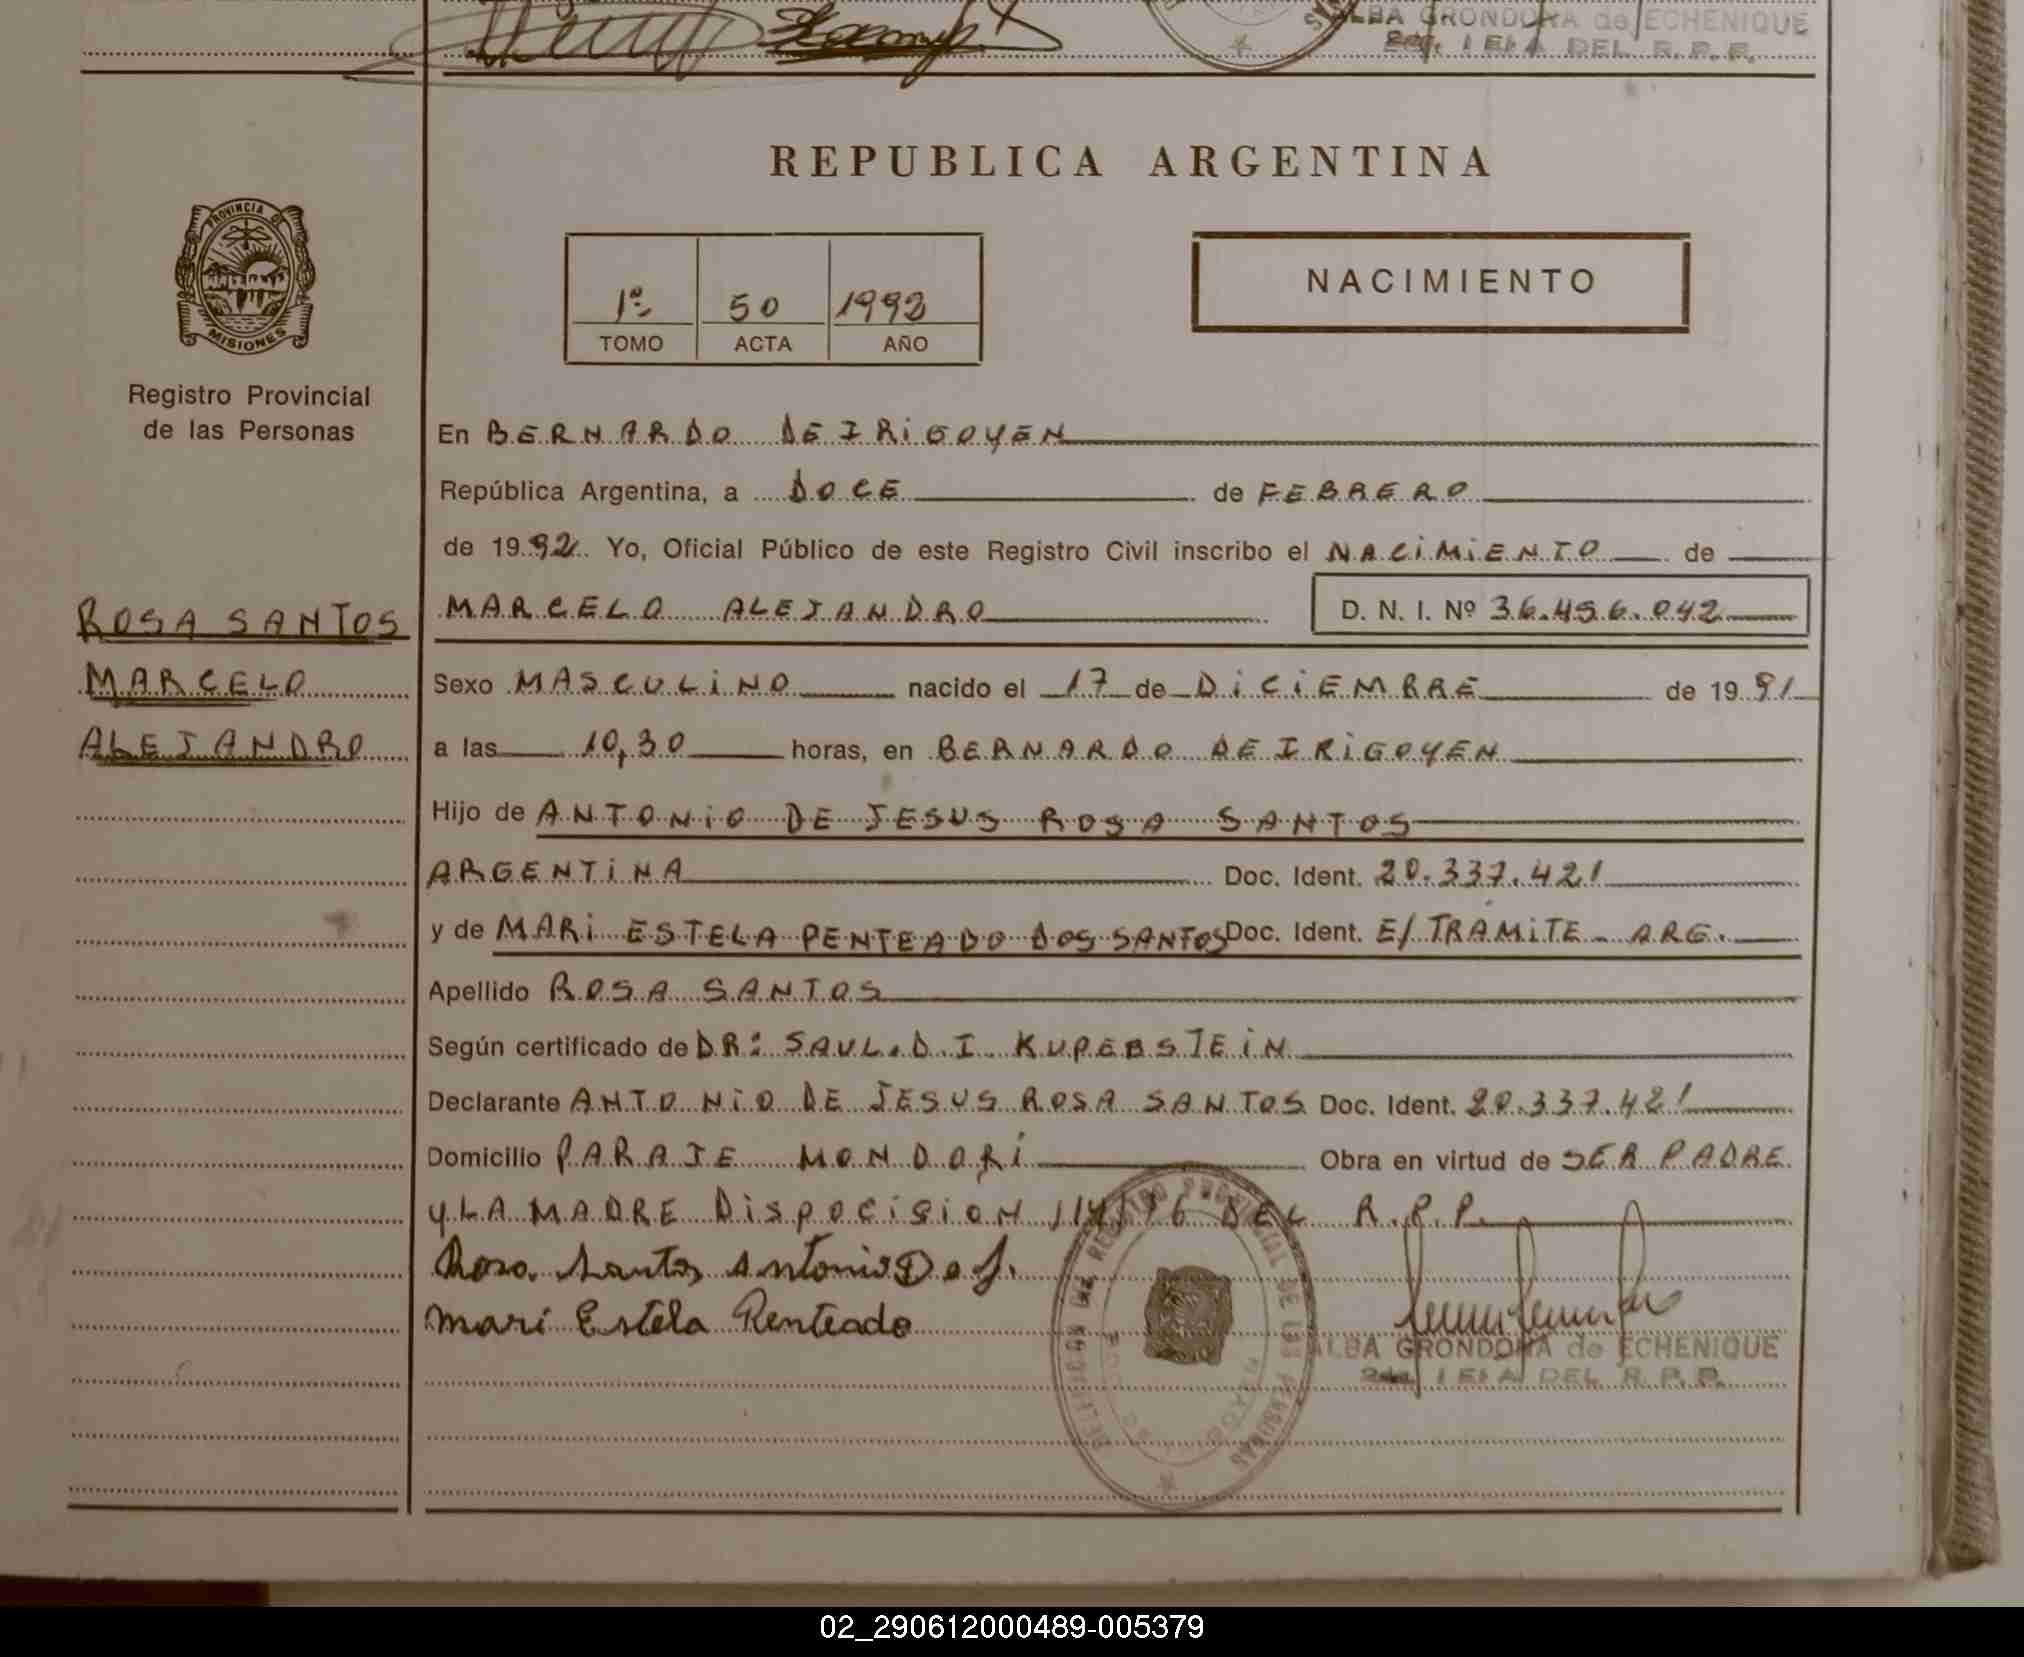 ALBA GRONDONA de ECHENIQUE
DEL R. P. P.
REPUBLICA ARGENTINA
PROVINCIA DE
MISIONES
1º 50 1992
TOMO ACTA AÑO
NACIMIENTO
Registro Provincial
de las Personas
En BERNARDO DE IRIGOYEN
República Argentina, a DOCE de FEBRERO
de 1992 Yo, Oficial Público de este Registro Civil inscribo el NACIMIENTO de
ROSA SANTOS
MARCELO
ALEJANDRO
MARCELO ALEJANDRO D. N. I. Nº 36.456.042
Sexo MASCULINO nacido el 17 de DICIEMBRE de 1991
a las 10,30 horas, en BERNARDO DE IRIGOYEN
Hijo de ANTONIO DE JESUS ROSA SANTOS
ARGENTINA Doc. Ident. 20.337.421
y de MARI ESTELA PENTEADO DOS SANTOS Doc. Ident. E/TRAMITE - ARG.
Apellido ROSA SANTOS
Según certificado de DR: SAUL.D.I KUPERSTEIN
Declarante ANTONIO DE JESUS ROSA SANTOS Doc. Ident. 20.337.421
Domicilio PARAJE MONDORI Obra en virtud de SER PADRE
Y LA MADRE DISPOCISION 114/76 DEL R.P.P.
Rosa Santos Antonio D e J.
Mari Estela Penteado
ALBA GRONDONA de ECHENIQUE
DEL R. P. P.
REGISTRO PROVINCIAL DE LAS PERSONAS
02_290612000489-005379